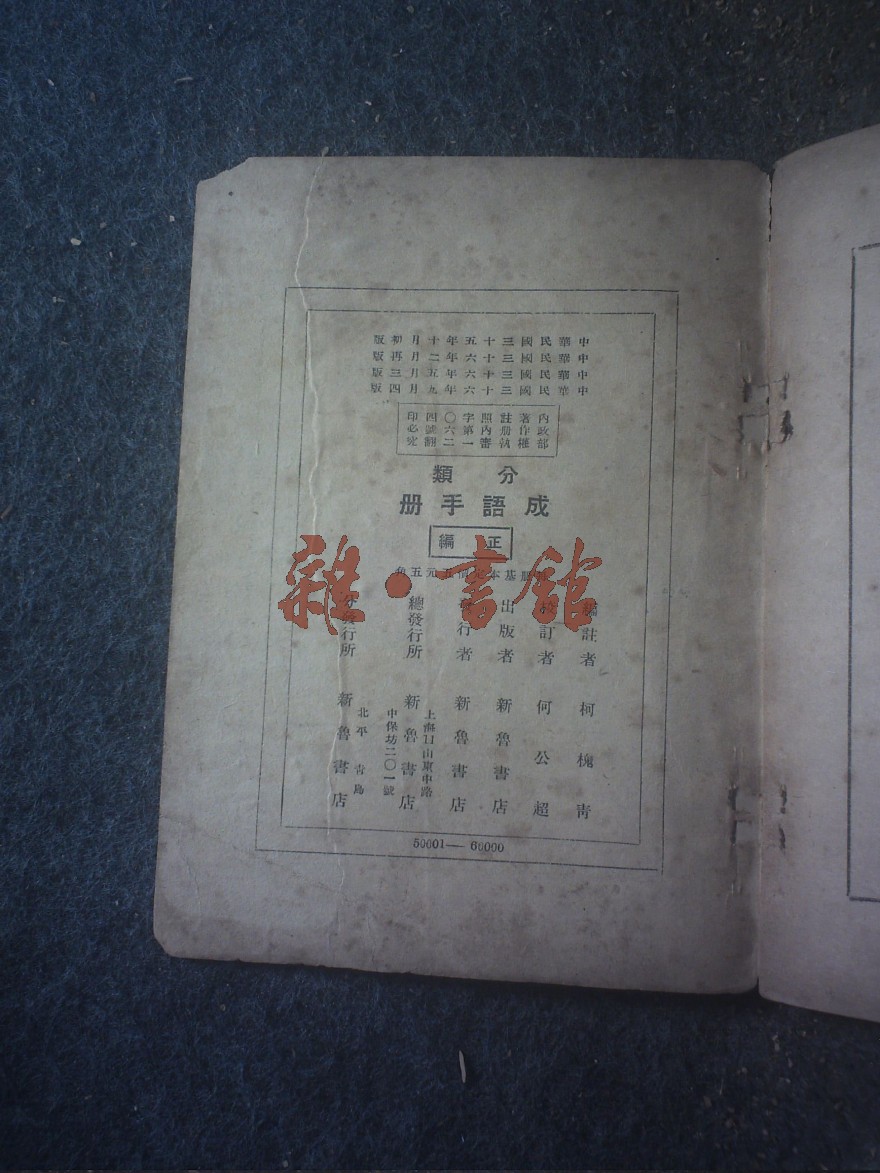 中華民國三十五年十月初版
中華民國三十六年二月再版
中華民國三十六年五月三版
中華民國三十六年九月四版
內政部
著作權
註册執
照內審
字第一
〇六二
四號翻
印必究
分類
成語手册
正編
册基本定價五元五角
編註者 柯槐青
校訂者 何公超
出版者 新魯書店
發行者 新魯書店
總發行所 新魯書店
上海山東中路
中保坊二〇一號
分發行所 新魯書店
北平 青島
50001—60000
雜·書館